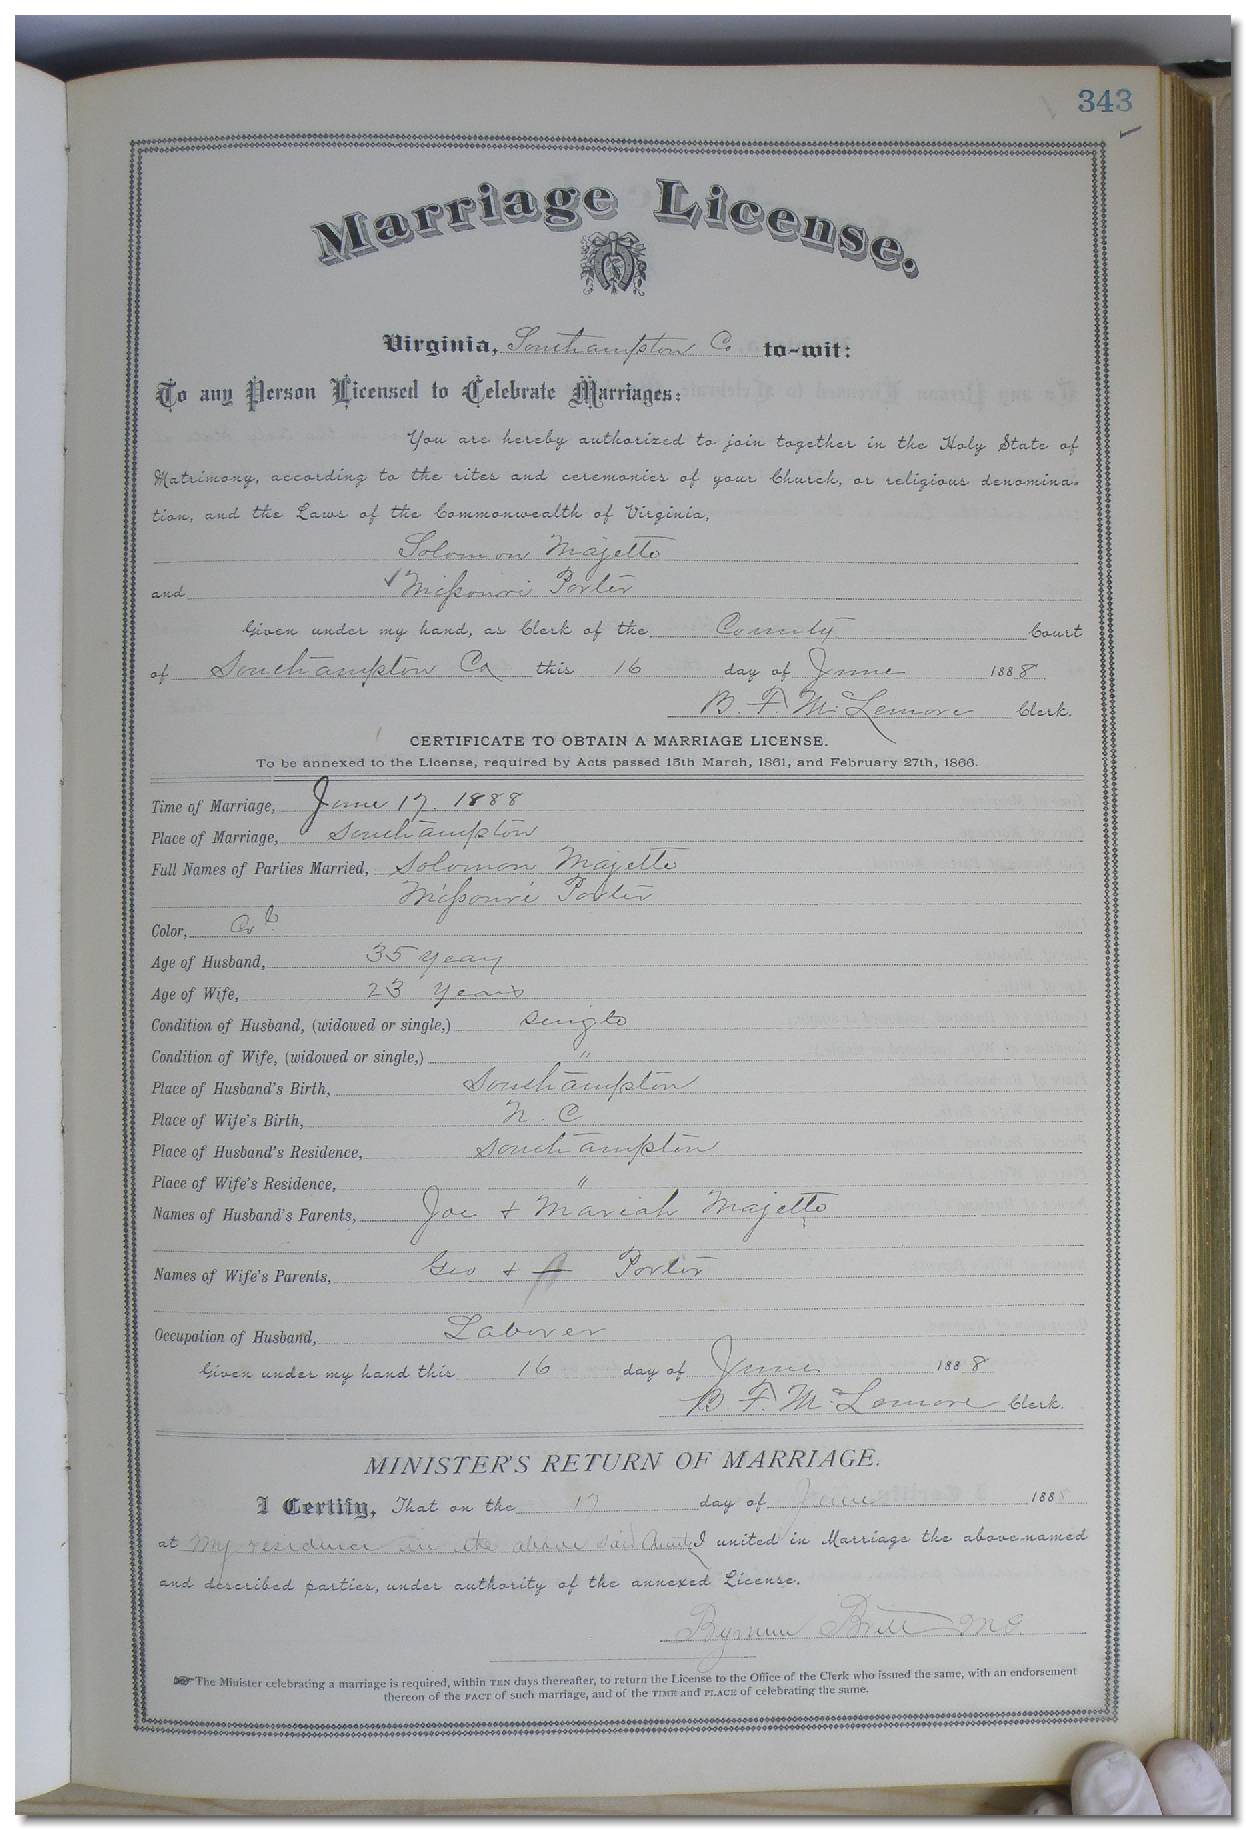 343
Marriage License.
Virginia, Southampton Co to-wit:
To any Person Licensed to Celebrate Marriages:
You are hereby authorized to join together in the Holy State of
Matrimony, according to the rites and ceremonies of your Church, or religious denomina-
tion, and the Laws of the Commonwealth of Virginia,
Solomon Majette
and Missouri Porter
Given under my hand, as Clerk of the County Court
of Southampton Co this 16 day of June 1888
B. F. McLemore Clerk.
CERTIFICATE TO OBTAIN A MARRIAGE LICENSE.
To be annexed to the License, required by Acts passed 15th March, 1861, and February 27th, 1866.
Time of Marriage, June 17. 1888
Place of Marriage, Southampton
Full Names of Parties Married, Solomon Majette
Missouri Porter
Color,
Age of Husband, 35 years
Age of Wife, 23 years
Condition of Husband, (widowed or single,) single
Condition of Wife, (widowed or single,) "
Place of Husband's Birth, Southampton
Place of Wife's Birth, N. C
Place of Husband's Residence, Southampton
Place of Wife's Residence, "
Names of Husband's Parents, Joe + Mariah Majette
Names of Wife's Parents, Geo + Porter
Occupation of Husband, Laborer
Given under my hand this 16 day of June 1888
B F. McLemore Clerk.
MINISTER'S RETURN OF MARRIAGE.
I Certify, That on the 17 day of June 1888
at My residence in the above said County I united in Marriage the above-named
and described parties, under authority of the annexed License.
Britt
The Minister celebrating a marriage is required, within TEN days thereafter, to return the License to the Office of the Clerk who issued the same, with an endorsement
thereon of the FACT of such marriage, and of the TIME and PLACE of celebrating the same.